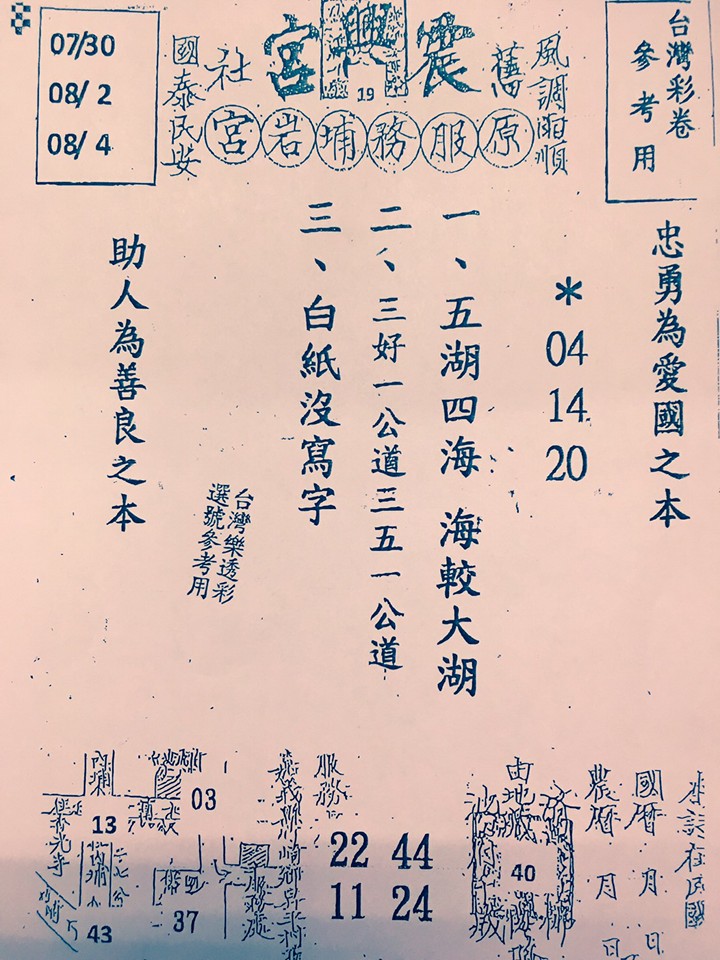 台灣彩卷
參考用
風調雨順
舊
震興宮
19
社
國泰民安
原服務埔岩宮
07/30
08/ 2
08/ 4
忠勇為愛國之本
*
04
14
20
一、五湖四海 海較大湖
二、三好一公道三五一公道
三、白紙沒寫字
台灣樂透彩
選號參考用
助人為善良之本
國曆 月 日
農曆 月 日
40
服務
22 44
11 24
03
13
37
43
服務處